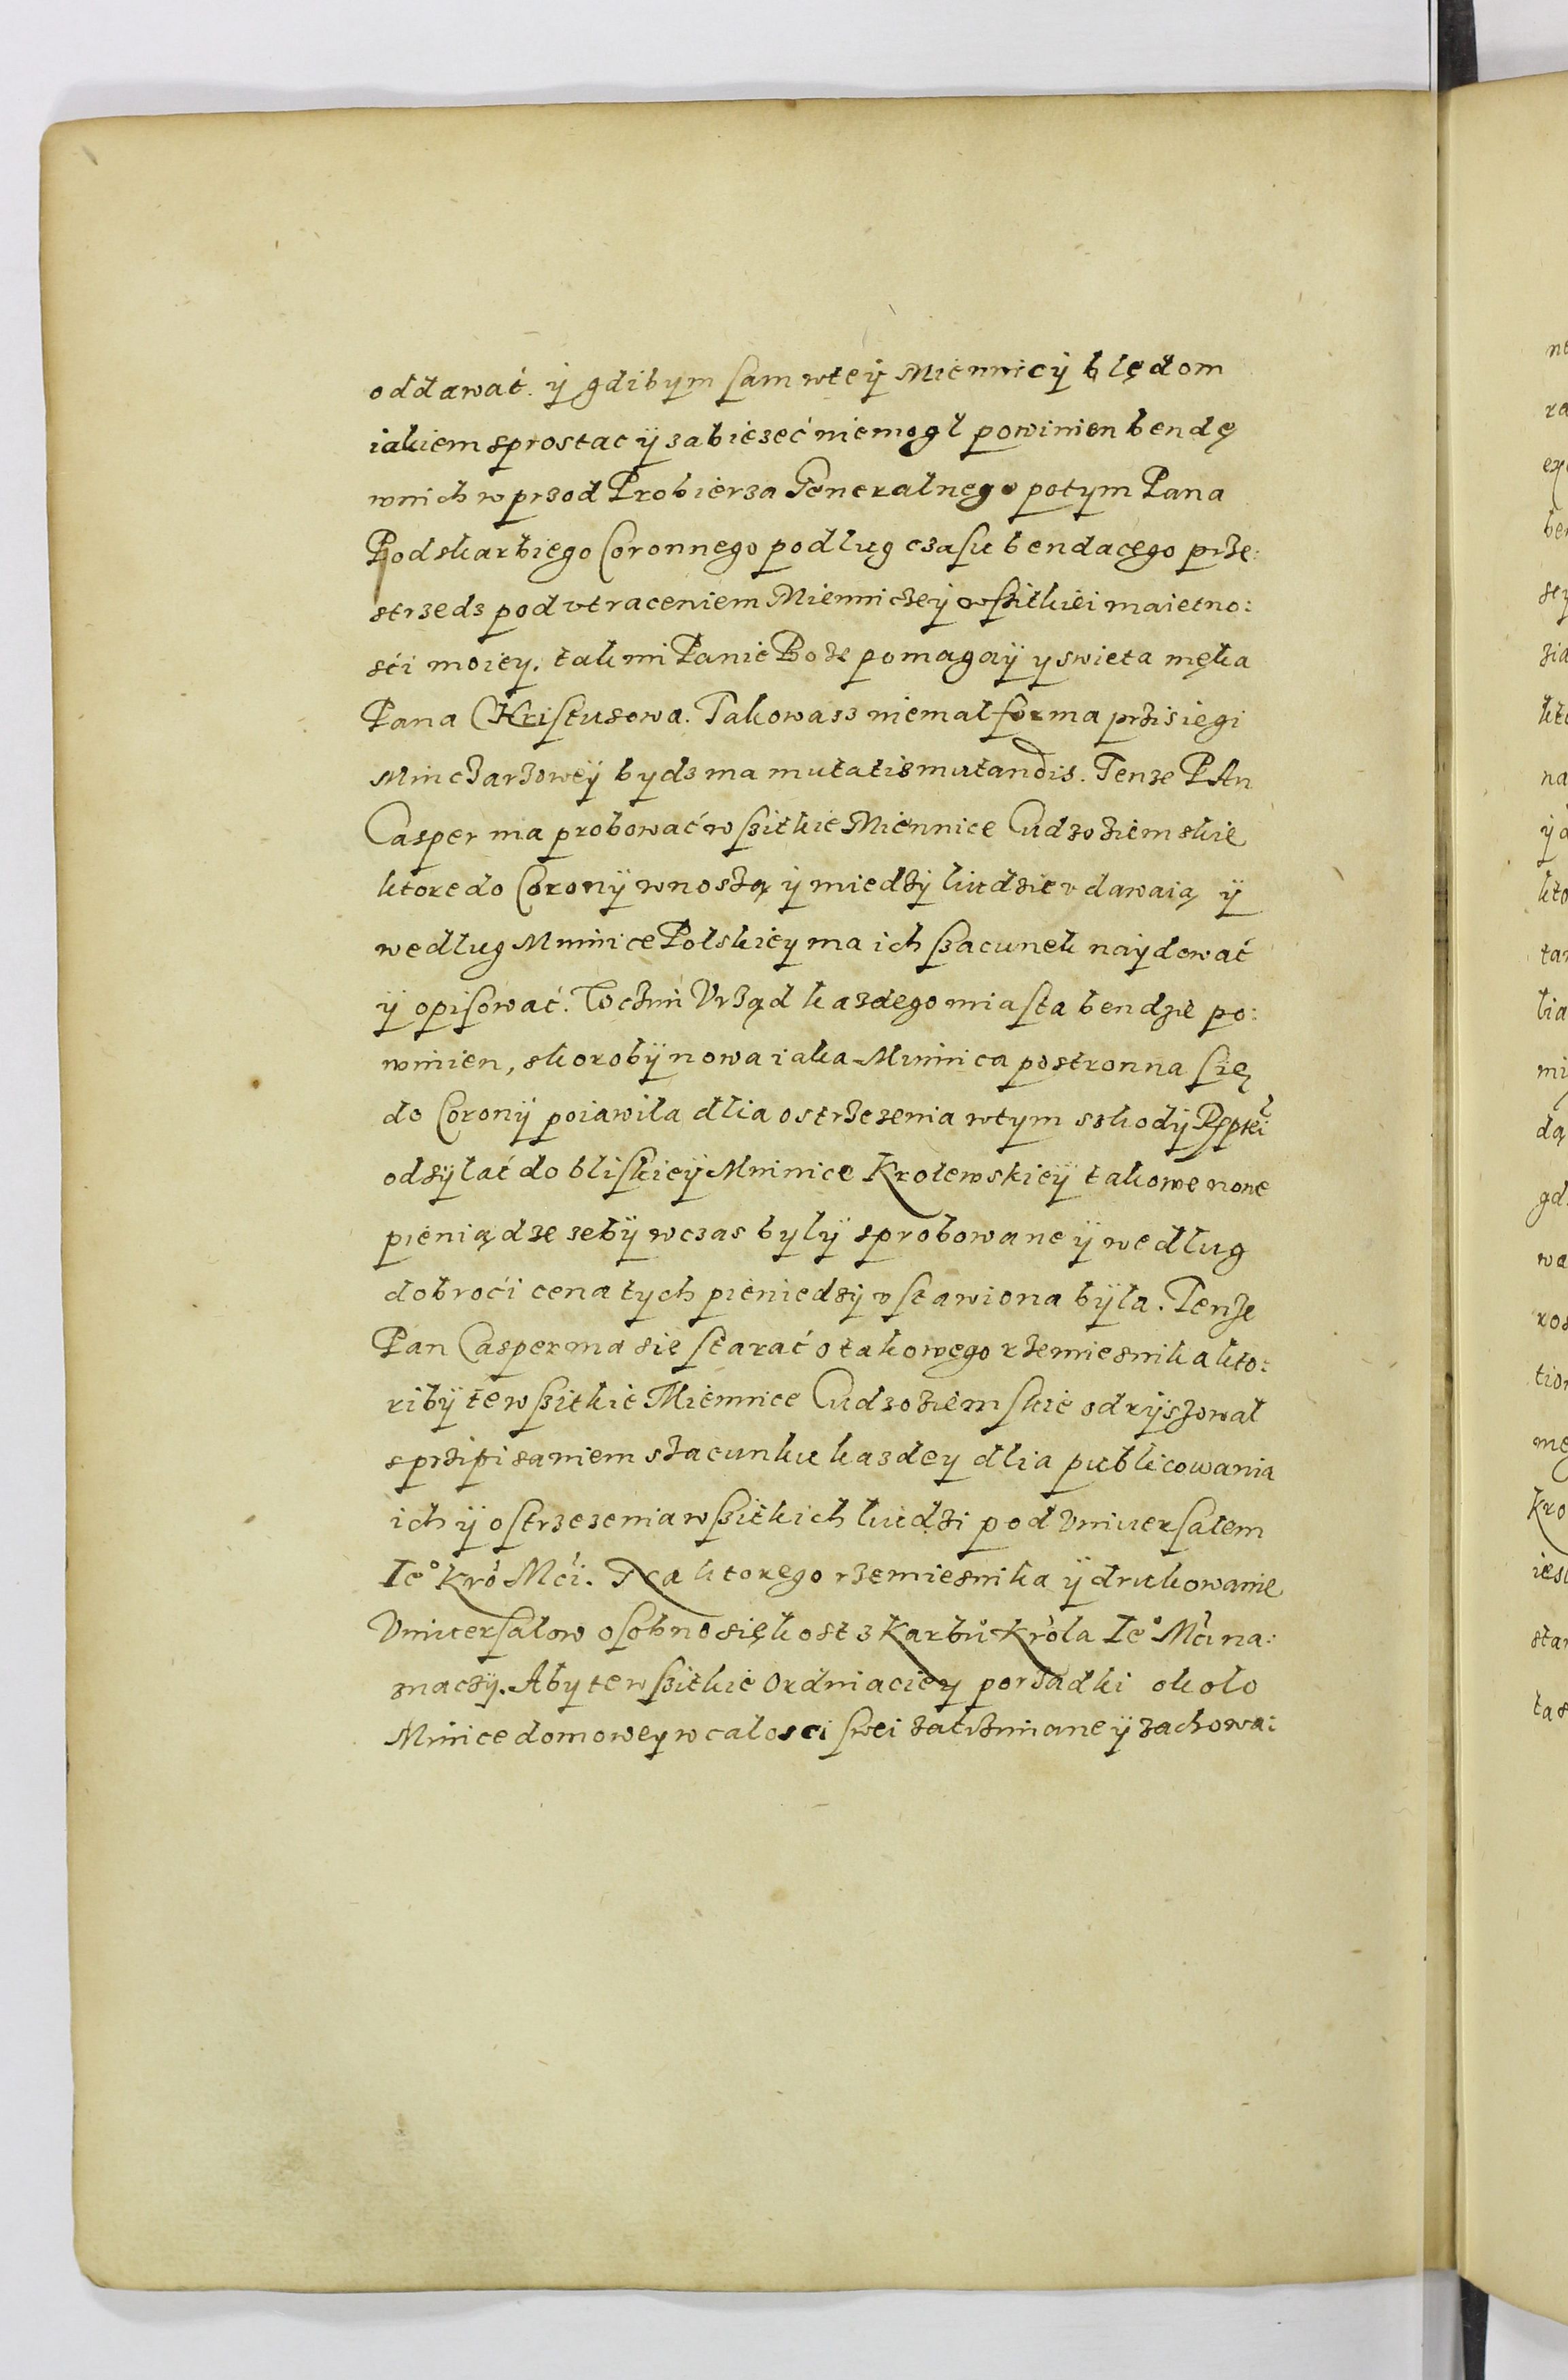 oddawać. ÿ gdibym sam wteÿ Miennicÿ blędom
iakiem sprostac ÿ zabiezeć niemogl powinien bendę
wnich w przod Probierza Generalnego potym Pana
Podskarbiego Coronnego podlug czasu bendacego prze:
strzedz pod vtraceniem Mienniczeÿ wszitkiei maietno:
sći moiey. tak mi Panie Boze pomagaÿ y swieta męka
Pana Christusowa. Takowasz niemal forma przisiegi
Minczarzoweÿ bydz ma mutatis mutandis. Tenze PAn
Casper ma probować wszitkie Miennice Cudzoziemskie
ktore do Coronÿ wnoszą ÿ miedzÿ liudzie vdawaią ÿ
wedlug Mninice Polskiey ma ich szacunek naÿdować
ÿ opisować. Vrząd kazdego miasta bendzie po:
winien, skorobÿ nowa iaka Mninica postronna się
do Coronÿ poiawila dlia ostrzezenia wtym szkodÿ Rsptei
odsÿlać do bliskieÿ Mninice Krolewskieÿ takowe nowe
pieniądze zebÿ wczas bylÿ sprobowane ÿ wedlug
dobroći cena tych pieniedzÿ vstawiona bÿla. Tenze
Pan Casper ma sie starać o takowego rzemiesnika kto:
ribÿ te wszitkie Miennice Cudzoziemskie odrÿszowal
s przipisaniem szacunku kazdey dlia publicowania
ich ÿ ostrzezenia wszitkich liudzi pod Vniuersalem
Ie° Kro Mći. Na ktorego rzemiesnika ÿ drukowanie
Vniuersalow osobno się kost z Karbu Króla Ie° Mći na:
znaczÿ. Aby te wszitkie Ordniaciey porzadki okolo
Mnice domowey w calosci swei zatrzimane ÿ zachowa: